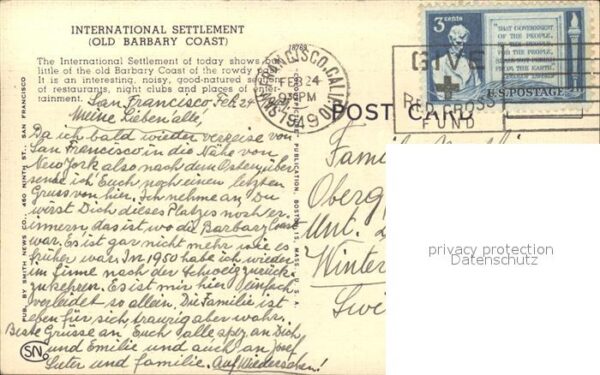 INTERNATIONAL SETTLEMENT
(OLD BARBARY COAST)
The International Settlement of today shows
little of the old Barbary Coast of the rowdy
It is an interesting, noisy, good-natured
of restaurants, night clubs and places of enter-
tainment.
San Francisco Feb. 24
Meine Lieben alle,
Da ich bald wieder verreise von
San Francisco in die Nähe von
New York also nach dem Osten über
sende ich Euch noch einen letzten
Gruss von hier. Ich nehme an Du
wirst Dich dieses Platzes noch er-
innern das ist wo die Barbary Coast
war. Es ist gar nicht mehr wie es
früher war. In 1950 habe ich wieder
im Sinne nach der Schweiz zurück
zukehren. Es ist mir hier einfach
verleidet so allein. Die Familie ist
eben für sich, traurig aber wahr.
Beste Grüsse an Euch alle spez. an Dich
und Emilie und auch an Josef
Suter und Familie. Auf Wiedersehen!
PUB. BY SMITH NEWS CO., 460 NINTH ST., SAN FRANCISCO
SN
SAN FRANCISCO, CALIF.
FEB 24
PM
1949
PUBLICATION, BOSTON 15, MASS., U. S. A.
POST CARD
GIVE
RED CROSS
FUND
3 cents
"THAT GOVERNMENT
OF THE PEOPLE,
BY THE PEOPLE,
FOR THE PEOPLE,
SHALL NOT PERISH
FROM THE EARTH."
U.S. POSTAGE
Oberg
Unt.
Winter
privacy protection
Datenschutz